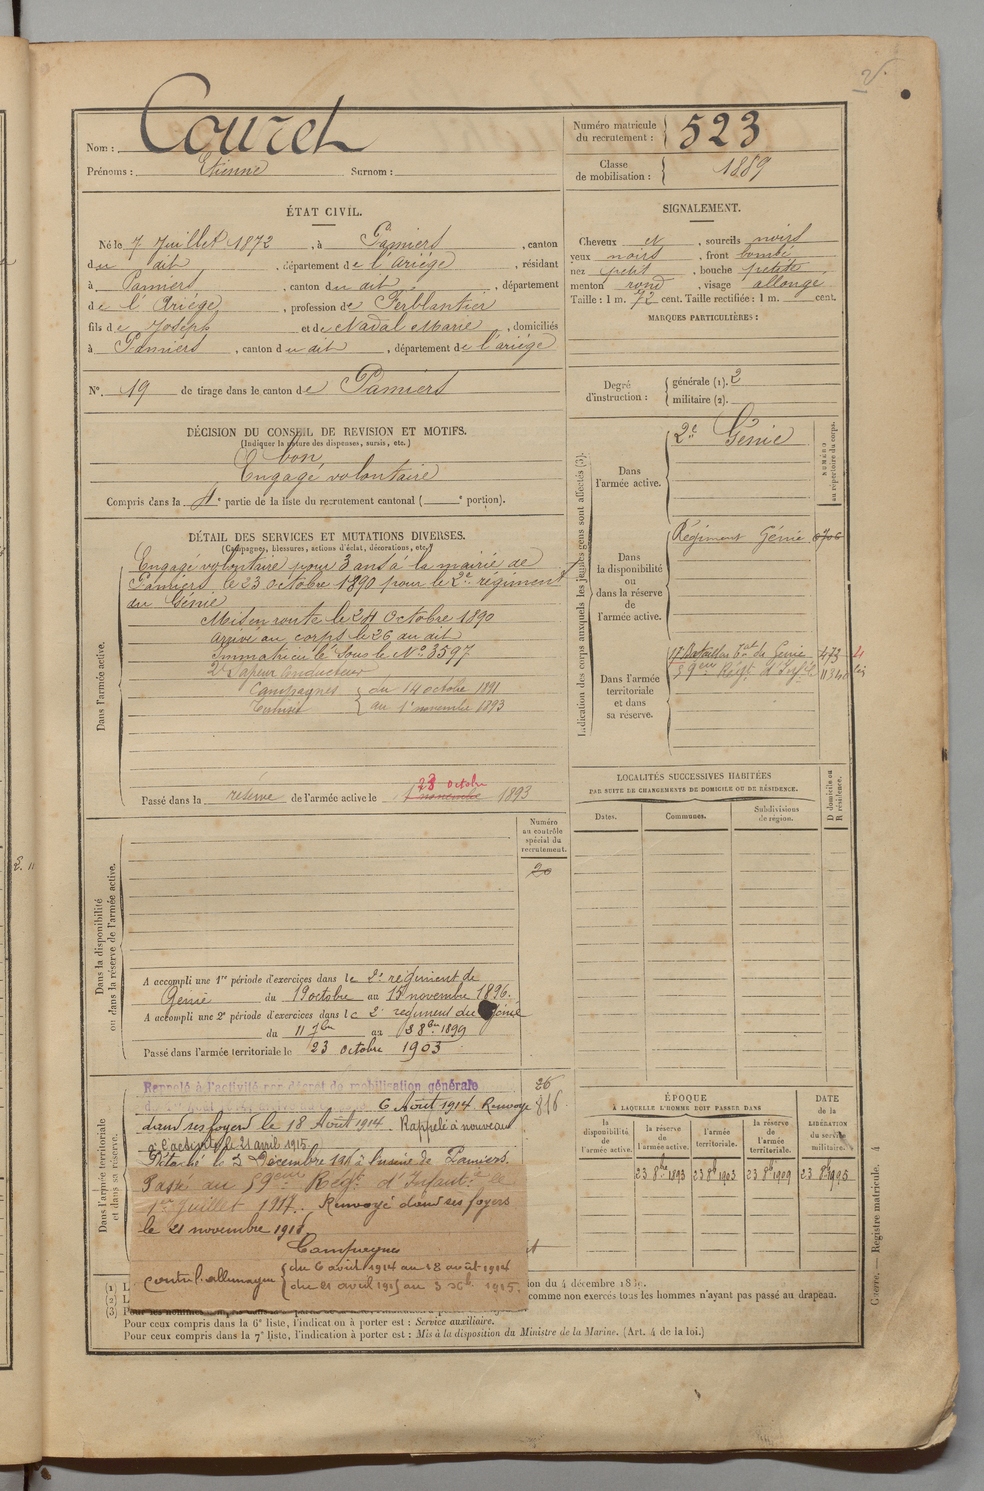 Nom : Couret
Prénoms : Etienne Surnom :
Numéro matricule du recrutement : 523
Classe de mobilisation : 1889
ÉTAT CIVIL.
Né le 7 Juillet 1872, à Pamiers, canton
du dit, département de l'Ariège, résidant
à Pamiers, canton du dit, département
de l'Ariège, profession de Ferblantier
fils de Joseph et de Nadal Marie, domiciliés
à Pamiers, canton du dit, département de l'ariège
N° 19 de tirage dans le canton de Pamiers
SIGNALEMENT.
Cheveux et, sourcils noirs
yeux noirs, front bombé
nez petit, bouche petite
menton rond, visage allongé
Taille : 1 m. 72 cent. Taille rectifiée : 1 m. cent.
MARQUES PARTICULIÈRES :
Degré d'instruction : générale (1). 2
militaire (2).
DÉCISION DU CONSEIL DE REVISION ET MOTIFS.
(Indiquer la nature des dispenses, sursis, etc.)
bon
Engagé volontaire
Compris dans la 4e partie de la liste du recrutement cantonal ( e portion).
DÉTAIL DES SERVICES ET MUTATIONS DIVERSES.
(Campagnes, blessures, actions d'éclat, décorations, etc.)
Dans l'armée active.
Engagé volontaire pour 3 ans à la mairie de
Pamiers le 23 octobre 1890 pour le 2e régiment
du Génie
Mis en route le 24 Octobre 1890
Arrivé au corps le 26 du dit
Immatriculé sous le No 3597
2e Sapeur Conducteur
Campagnes du 14 octobre 1891
au 1er novembre 1893
Passé dans la réserve de l'armée active le 1 novembre 23 octobre 1893
Indication des corps auxquels les jeunes gens sont affectés (3).
NUMÉRO au répertoire du corps.
Dans l'armée active.
2e Génie
Dans la disponibilité ou dans la réserve de l'armée active.
Régiment Génie
Dans l'armée territoriale et dans sa réserve.
17 Bataillon Tal du Génie 473
59eme Régt d'Infie
LOCALITÉS SUCCESSIVES HABITÉES
PAR SUITE DE CHANGEMENTS DE DOMICILE OU DE RÉSIDENCE.
D domicile ou R résidence.
Dates. Communes. Subdivisions de région.
Dans la disponibilité ou dans la réserve de l'armée active.
Numéro au contrôle spécial du recrutement.
20
A accompli une 1re période d'exercices dans le 2e régiment de
Génie du 19 octobre au 15 novembre 1896.
A accompli une 2e période d'exercices dans le 2e regiment du Génie
du 11 7bre au 8 8bre 1899
Passé dans l'armée territoriale le 23 octobre 1903
Dans l'armée territoriale et dans sa réserve.
Rappelé à l'activité par décret de mobilisation générale
6 Août 1914 Renvoyé
dans ses foyers le 18 Août 1914. Rappelé à nouveau
à l'activité le 21 avril 1915
Détaché le 3 Décembre à l'usine de Pamiers.
Passé au 59eme Régt d'Infantie le
1er Juillet 1917. Renvoyé dans ses foyers
le 21 novembre 1918
Campagnes
contre l'allemagne du 6 août 1914 au 18 août 1914
du 21 avril 1915 au 3 Xbre 1915.
26
816
ÉPOQUE
À LAQUELLE L'HOMME DOIT PASSER DANS
DATE de la LIBÉRATION du service militaire.
la disponibilité de l'armée active.
la réserve de l'armée active.
l'armée territoriale.
la réserve de l'armée territoriale.
23 8bre 1893 23 8b 1903 23 8b 1909
(1) L
ion du 4 décembre
(2) L
comme non exercés tous les hommes n'ayant pas passé au drapeau.
(3)
Pour ceux compris dans la 6e liste, l'indication à porter est : Service auxiliaire.
Pour ceux compris dans la 7e liste, l'indication à porter est : Mis à la disposition du Ministre de la Marine. (Art. 4 de la loi.)
Guerre. — Registre matricule. 4